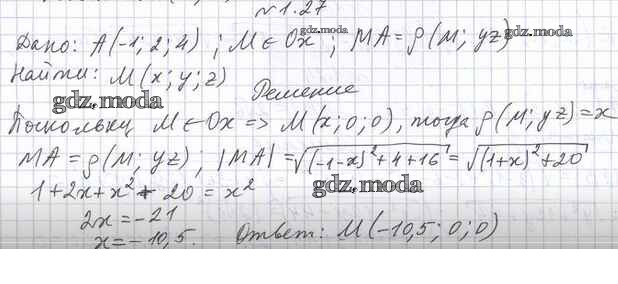 №1.27
Дано: A(-1; 2; 4) ; M ∈ Ox ; MA = ρ(M; yz)
gdz.moda gdz.moda
Найти: M(x; y; z)
Решение
gdz.moda
Поскольку M ∈ Ox => M(x; 0; 0), тогда ρ(M; yz) = x
MA = ρ(M; yz) ; |MA| = √((-1-x)²+4+16) = √((1+x)²+20)
gdz.moda
1+2x+x²+20 = x²
2x = -21
x = -10,5. Ответ: M(-10,5; 0; 0)